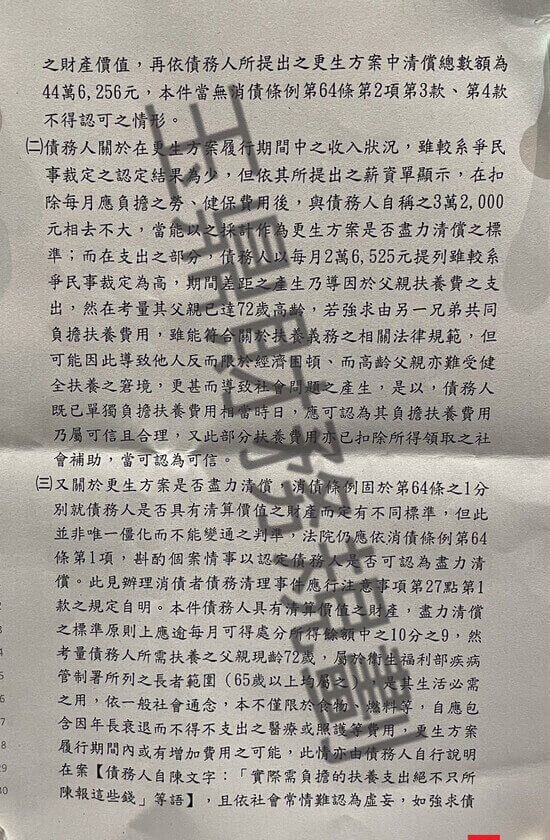 之財產價值，再依債務人所提出之更生方案中清償總數額為
44萬6,256元，本件當無消債條例第64條第2項第3款、第4款
不得認可之情形。
㈡債務人關於在更生方案履行期間中之收入狀況，雖較系爭民
事裁定之認定結果為少，但依其所提出之薪資單顯示，在扣
除每月應負擔之勞、健保費用後，與債務人自稱之3萬2,000
元相去不大，當能以之採計作為更生方案是否盡力清償之標
準；而在支出之部分，債務人以每月2萬6,525元提列雖較系
爭民事裁定為高，期間差距之產生乃導因於父親扶養費之支
出，然在考量其父親已達72歲高齡，若強求由另一兄弟共同
負擔扶養費用，雖能符合關於扶養義務之相關法律規範，但
可能因此導致他人反而限於經濟困頓、而高齡父親亦難受健
全扶養之窘境，更甚而導致社會問題之產生，是以，債務人
既已單獨負擔扶養費用相當時日，應可認為其負擔扶養費用
乃屬可信且合理，又此部分扶養費用亦已扣除所得領取之社
會補助，當可認為可信。
㈢又關於更生方案是否盡力清償，消債條例固於第64條之1分
別就債務人是否具有清算價值之財產而定有不同標準，但此
並非唯一僵化而不能變通之判準，法院仍應依消債條例第64
條第1項，斟酌個案情事以認定債務人是否可認為盡力清
償。此見辦理消費者債務清理事件應行注意事項第27點第1
款之規定自明。本件債務人具有清算價值之財產，盡力清償
之標準原則上應逾每月可得處分所得餘額中之10分之9，然
考量債務人所需扶養之父親現齡72歲，屬於衛生福利部疾病
管制署所列之長者範圍（65歲以上均屬之），是其生活必需
之用，依一般社會通念，本不僅限於食物、燃料等，自應包
含因年長衰退而不得不支出之醫療或照護等費用，更生方案
履行期間內或有增加費用之可能，此情亦由債務人自行說明
在案【債務人自陳文字：「實際需負擔的扶養支出絕不只所
陳報這些錢」等語】，且依社會常情難認為虛妄，如強求債
玉鼎財務規劃
28
29
30